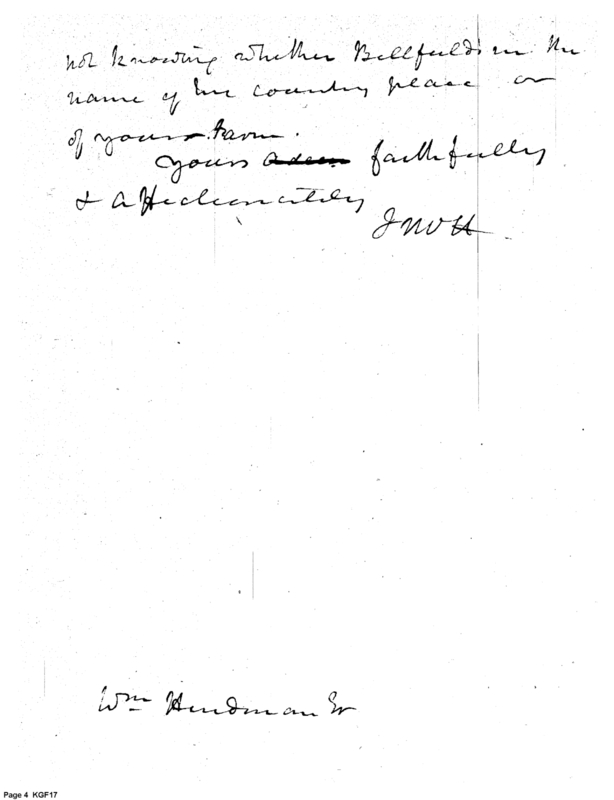 not knowing whether Bellfield is in the
name of the country place or
of your farm.
yours faithfully
& affectionately
JWH
Wm Hindman Er
Page 4 KGF17